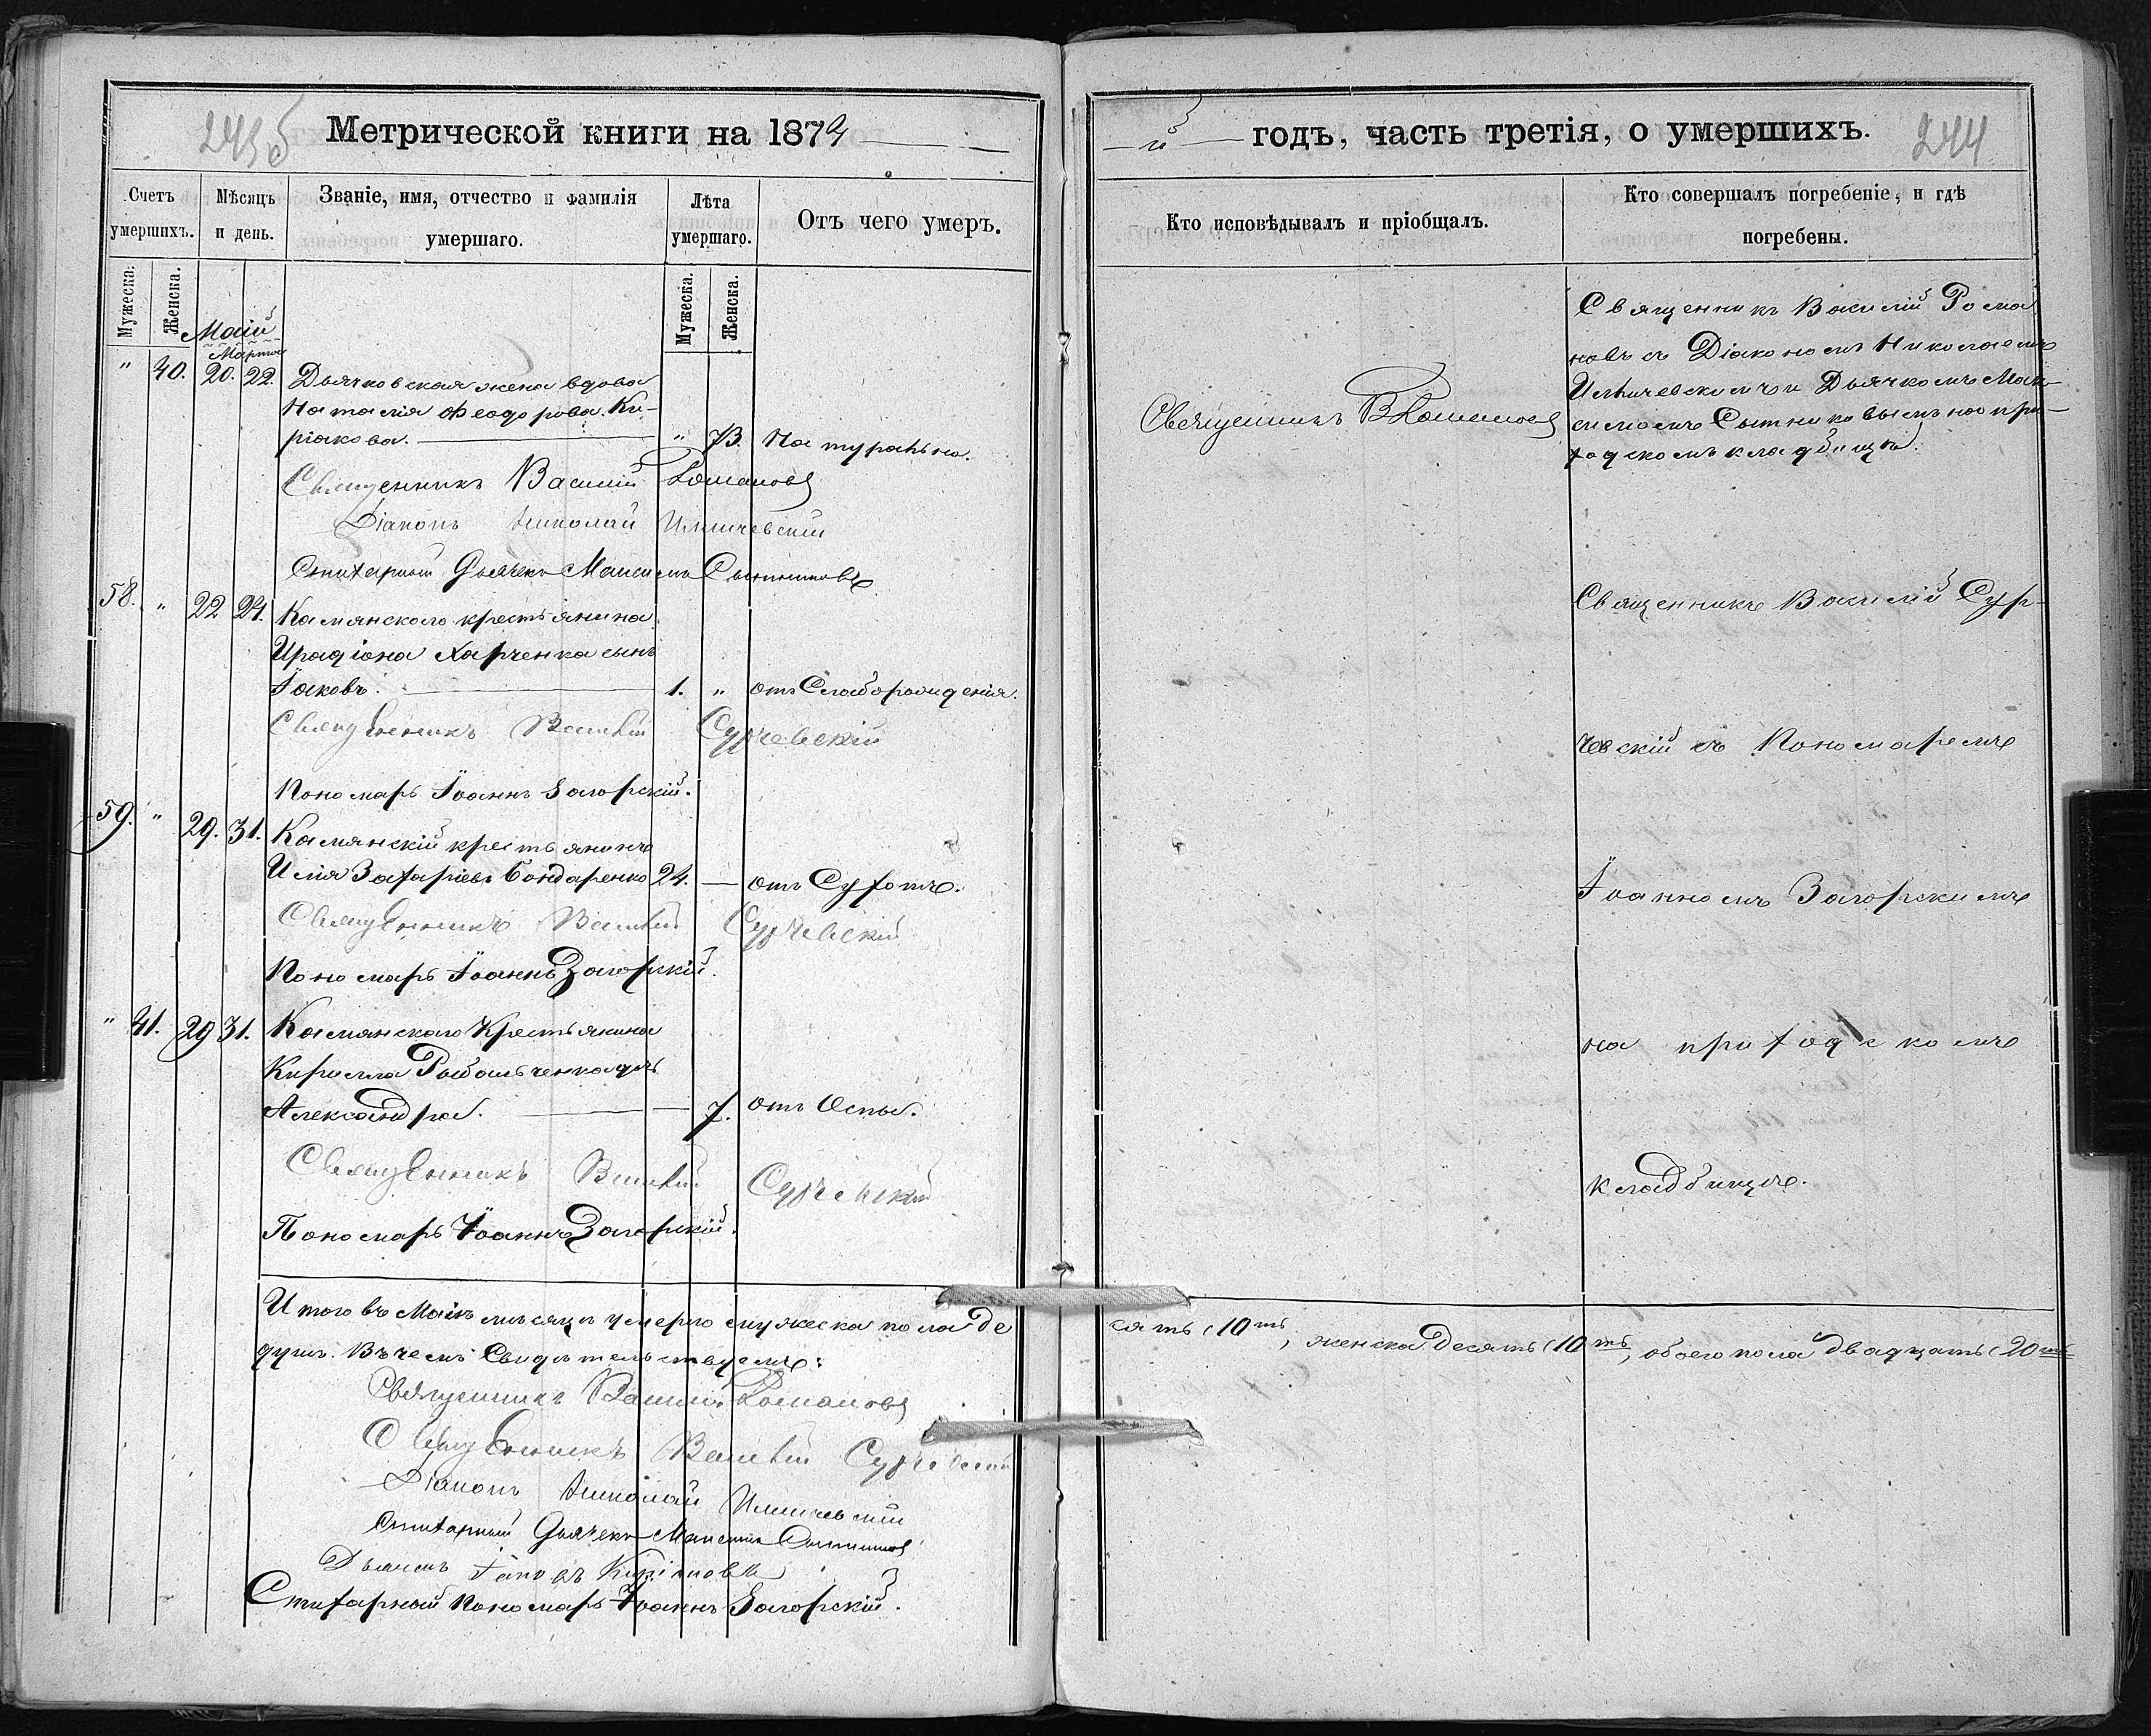 243б
Метрической книги на 1874
Счетъ умершихъ.
Мѣсяцъ и день.
Званіе, имя, отчество и фамилія
умершаго.
Лѣта
умершаго.
Отъ чего умеръ.
Мужеска.
Женска.
Май
Марта
Мужеска.
Женска.
" 40. 20. 22. Дьячковская жена вдова
Наталія Феодорова Ки-
ріакова. " 73. Натурально.
Священникъ Василій Романовъ
Діаконъ Николай
Стихарный Дьячекъ Максимъ Сытниковъ
58. " 22 24. Камянскаго крестьянина
Иродіона Харченка сынъ
Іаковъ. 1. " отъ Слаборожденія.
Священникъ Василій Сурчевскій
Пономарь Іоаннъ Загорскій.
59. " 29. 31. Камянскій крестьянинъ
Илія Захаріевъ Бондаренко 24. — отъ Сухотъ.
Священникъ Василій Сурчевскій
Пономарь Іоаннъ Загорскій.
" 41. 29 31. Камянскаго Крестьянина
Кирилла Рыбальченка дчь
Александра. — 7. отъ Оспы.
Священникъ Василій Сурчевскій
Пономарь Іоаннъ Загорскій.
Итого въ Маіѣ мѣсяцѣ умерло мужеска пола де
душъ. Въ чемъ Свидѣтельствуемъ:
Священникъ Василій Романовъ
Священникъ Василій Сурчевскій
Діаконъ Николай
Стихарный Дьячекъ Максимъ Сытниковъ
Дьячекъ Іаковъ Киріаковъ
Стихарный Пономарь Іоаннъ Загорскій.
й годъ, часть третія, о умершихъ.
244
Кто исповѣдывалъ и пріобщалъ.
Кто совершалъ погребеніе, и гдѣ
погребены.
Священникъ В Романовъ
Священникъ Василій Рома
новъ съ Діакономъ Николаемъ
и Дьячкомъ Мак-
симомъ Сытниковымъ на при-
ходскомъ кладбищѣ.
Священникъ Василій Сур-
чевскій съ Пономаремъ
Іоанномъ Загорскимъ
на приходскомъ
кладбищѣ.
сять (10ть, женска Десять (10ть, обоего пола двадцать (20ть